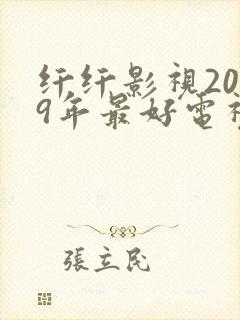 纤纤影視20
9年最好電視
張立民